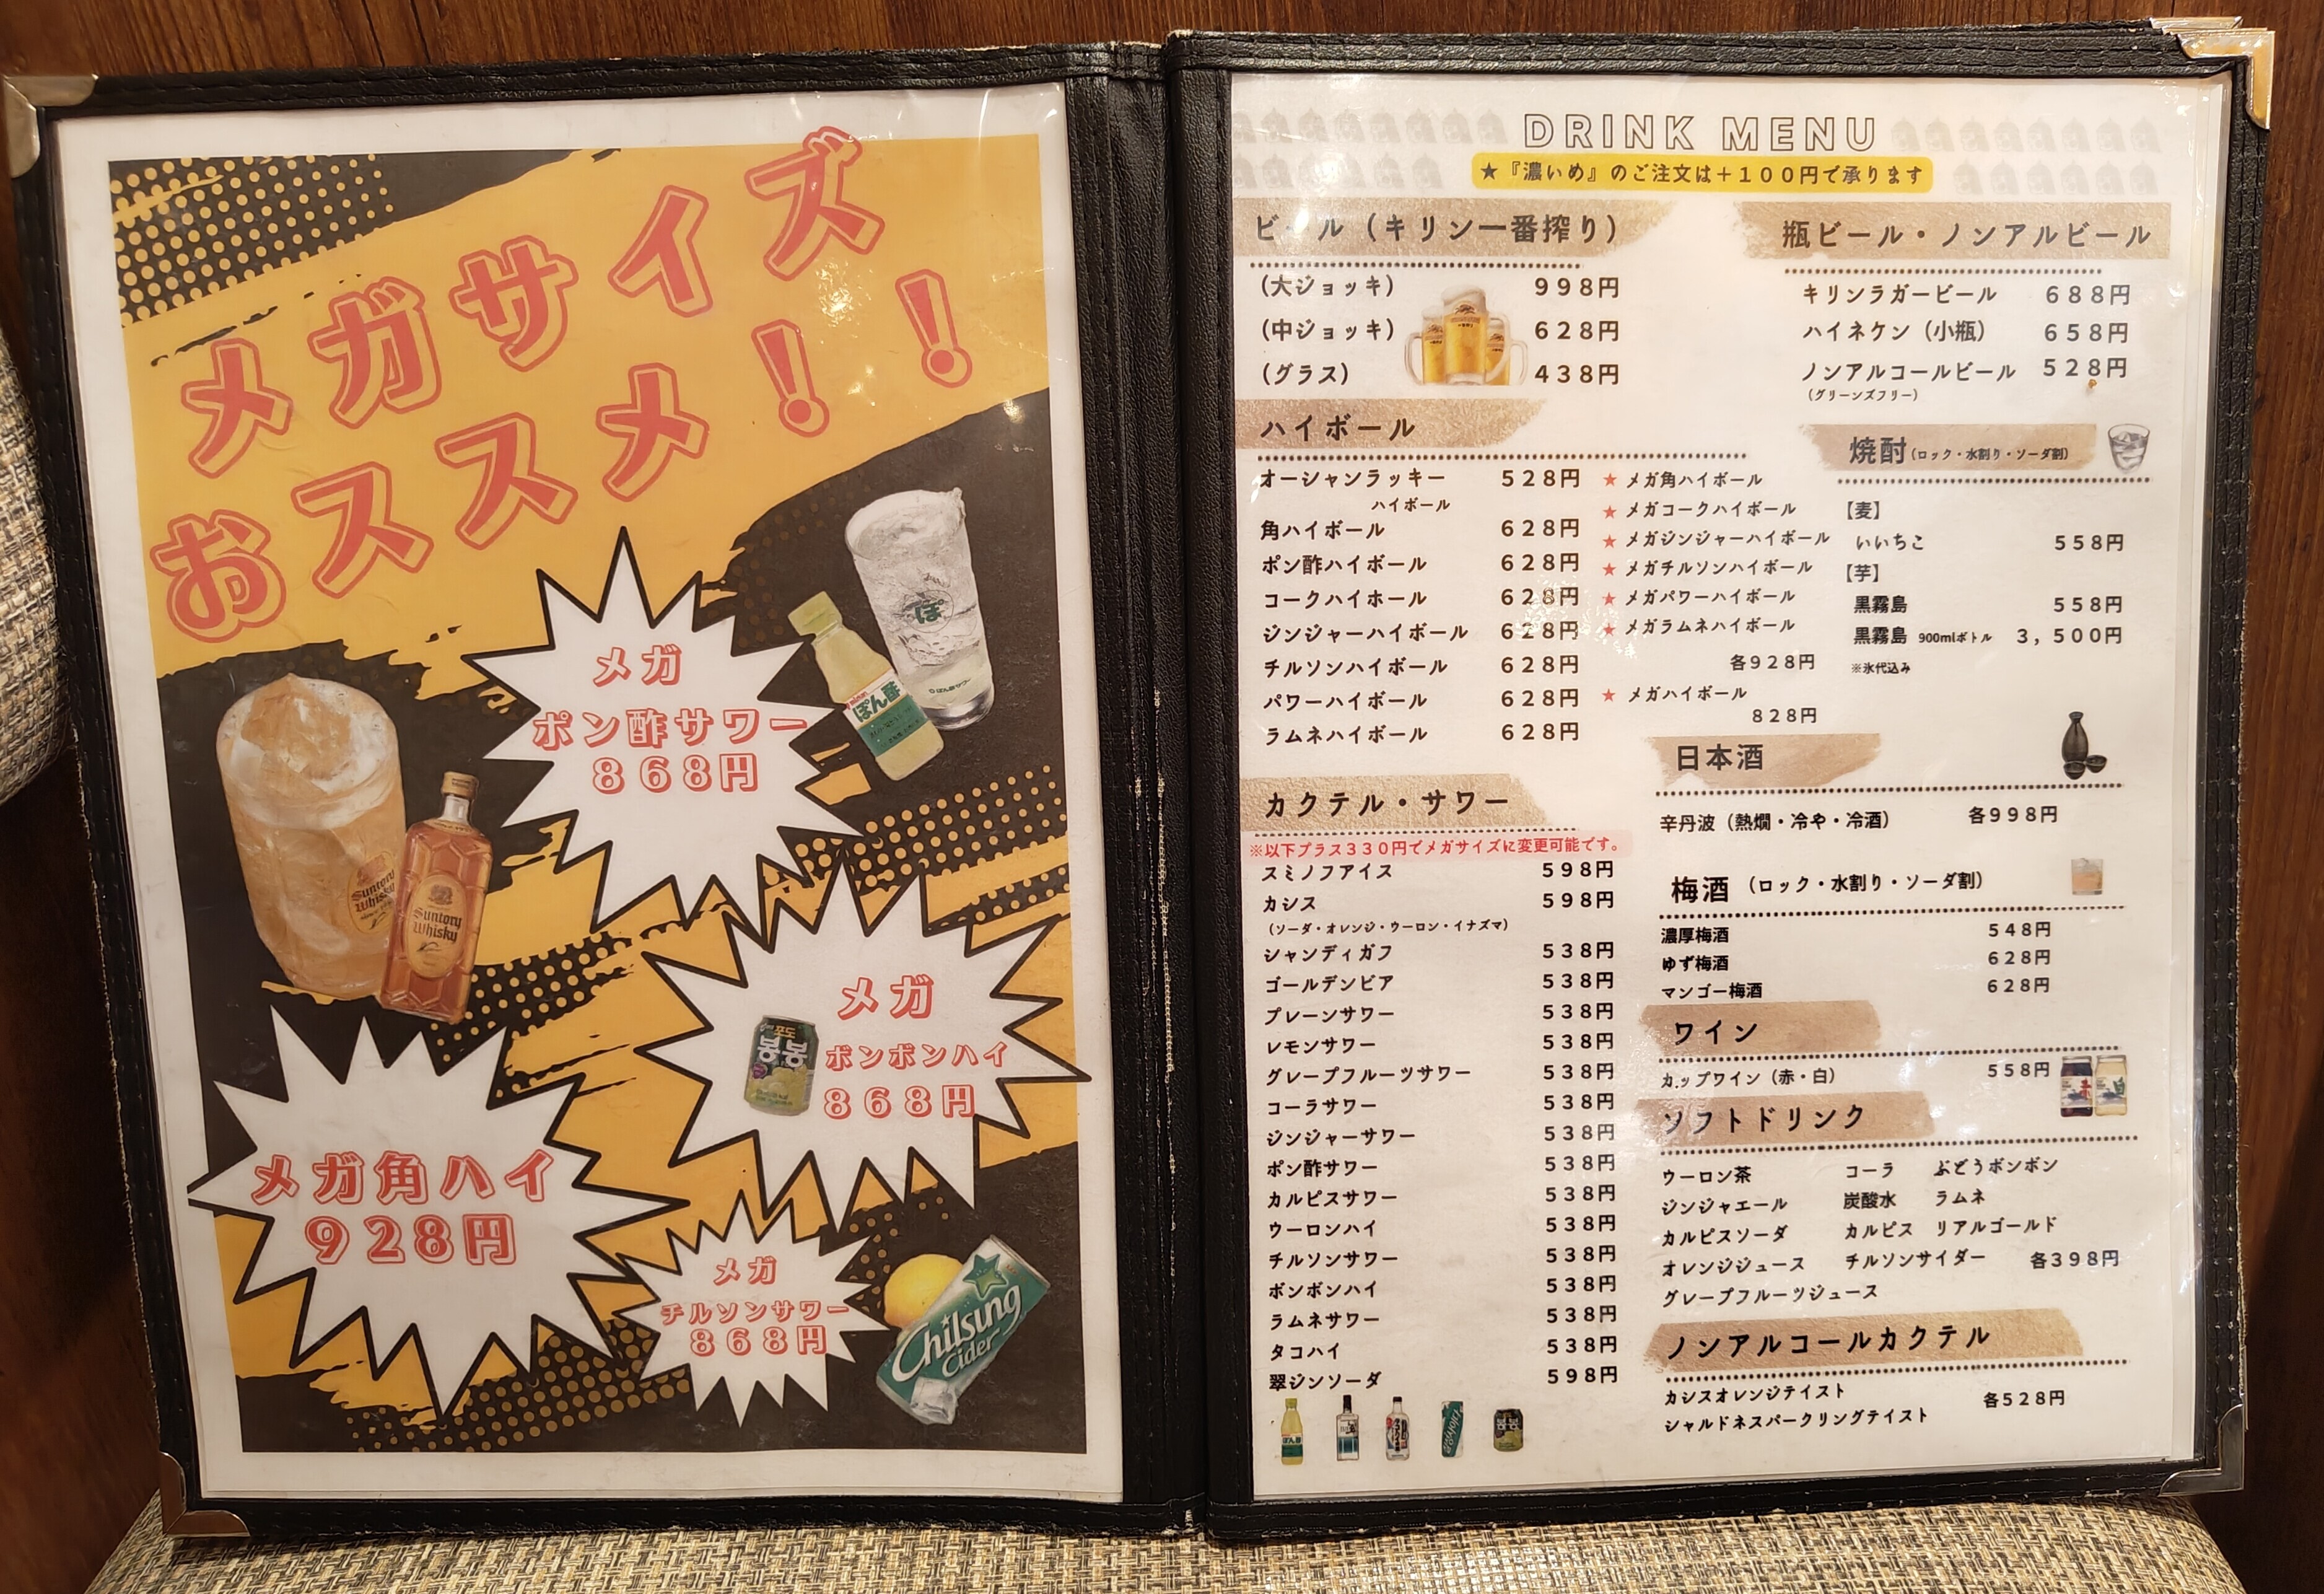 メガサイズ
おススメ！！
メガ
ポン酢サワー
868円
ぽ
ぽん酢サワー
ぽん酢
Suntory
Whisky
Suntory
Whisky
メガ
포도
봉봉
ボンボンハイ
868円
メガ角ハイ
928円
メガ
チルソンサワー
868円
Chilsung
Cider
DRINK MENU
★『濃いめ』のご注文は＋１００円で承ります
ビール（キリン一番搾り）
（大ジョッキ） 998円
（中ジョッキ） 628円
（グラス） 438円
ハイボール
オーシャンラッキー 528円
ハイボール
角ハイボール 628円
ポン酢ハイボール 628円
コークハイホール 628円
ジンジャーハイボール 628円
チルソンハイボール 628円
パワーハイボール 628円
ラムネハイボール 628円
★ メガ角ハイボール
★ メガコークハイボール
★ メガジンジャーハイボール
★ メガチルソンハイボール
★ メガパワーハイボール
★ メガラムネハイボール
各928円
★ メガハイボール
828円
カクテル・サワー
※以下プラス３３０円でメガサイズに変更可能です。
スミノフアイス 598円
カシス 598円
（ソーダ・オレンジ・ウーロン・イナズマ）
シャンディガフ 538円
ゴールデンビア 538円
プレーンサワー 538円
レモンサワー 538円
グレープフルーツサワー 538円
コーラサワー 538円
ジンジャーサワー 538円
ポン酢サワー 538円
カルピスサワー 538円
ウーロンハイ 538円
チルソンサワー 538円
ボンボンハイ 538円
ラムネサワー 538円
タコハイ 538円
翠ジンソーダ 598円
瓶ビール・ノンアルビール
キリンラガービール 688円
ハイネケン（小瓶） 658円
ノンアルコールビール 528円
（グリーンズフリー）
焼酎（ロック・水割り・ソーダ割）
【麦】
いいちこ 558円
【芋】
黒霧島 558円
黒霧島 900mlボトル 3，500円
※氷代込み
日本酒
辛丹波（熱燗・冷や・冷酒） 各998円
梅酒（ロック・水割り・ソーダ割）
濃厚梅酒 548円
ゆず梅酒 628円
マンゴー梅酒 628円
ワイン
カップワイン（赤・白） 558円
赤 白
ソフトドリンク
ウーロン茶 コーラ ぶどうボンボン
ジンジャエール 炭酸水 ラムネ
カルピスソーダ カルピス リアルゴールド
オレンジジュース チルソンサイダー 各398円
グレープフルーツジュース
ノンアルコールカクテル
カシスオレンジテイスト 各528円
シャルドネスパークリングテイスト